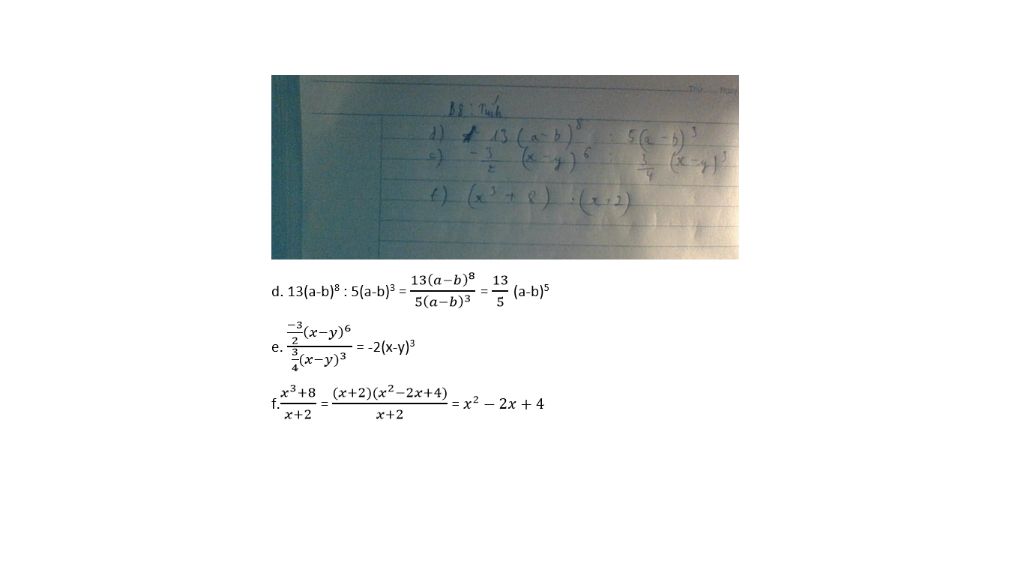 B8: Tính
d) 13 (a-b)⁸ : 5(a-b)³
e) -3/2 (x-y)⁶ : 3/4 (x-y)³
f) (x³ + 8) : (x+2)
d. 13(a-b)⁸ : 5(a-b)³ = 13(a−b)⁸/5(a−b)³ = 13/5 (a-b)⁵
e. −3/2(x−y)⁶ / 3/4(x−y)³ = -2(x-y)³
f. x³+8/x+2 = (x+2)(x²−2x+4)/x+2 = x² − 2x + 4